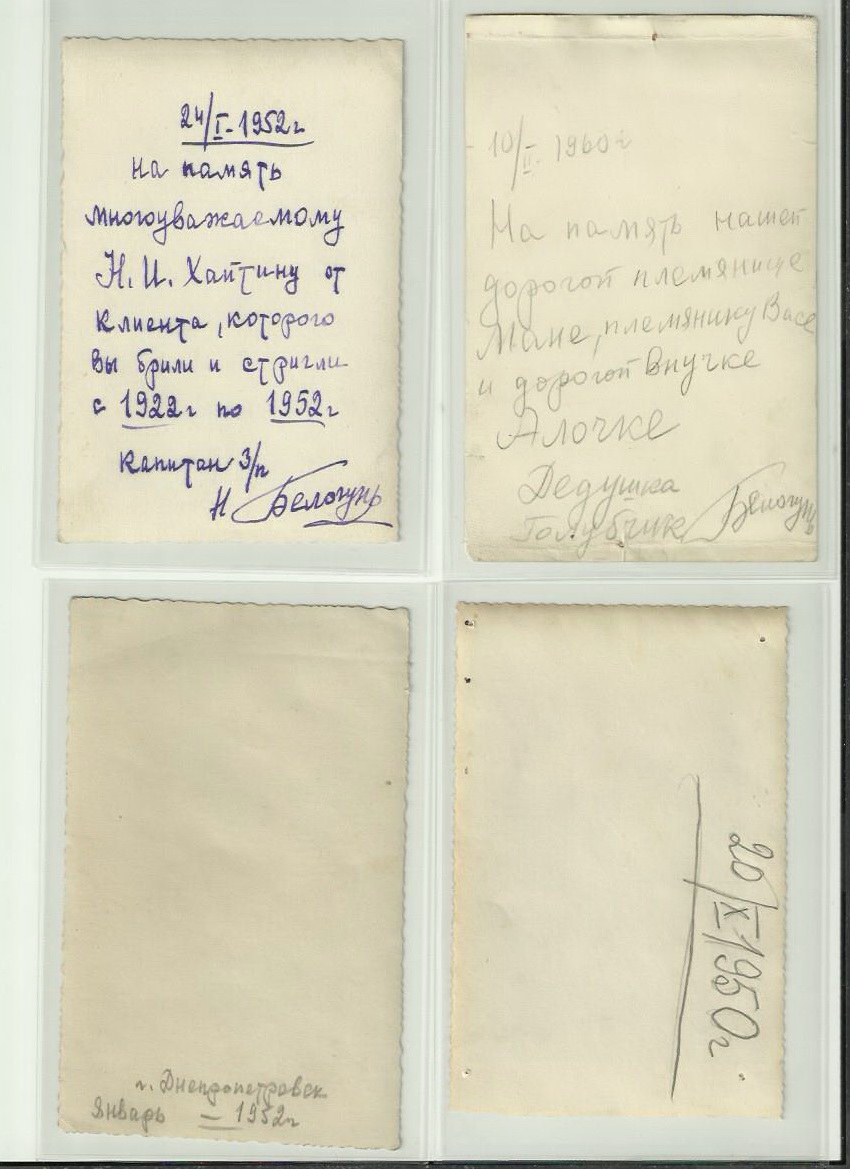 24/I-1952г
На память
многоуважаемому
Н.И. Хайтину от
клиента, которого
Вы брили и стригли
с 1922г по 1952г
Капитан З/п
Н Белогуръ
10/II. 1960г
На память нашей
дорогой племянице
Мане, племянику Васе
и дорогой Внучке
Алочке
Дедушка
Голубчик Белогуръ
г. Днепропетровск
Январь – 1952г
20/X-1950г